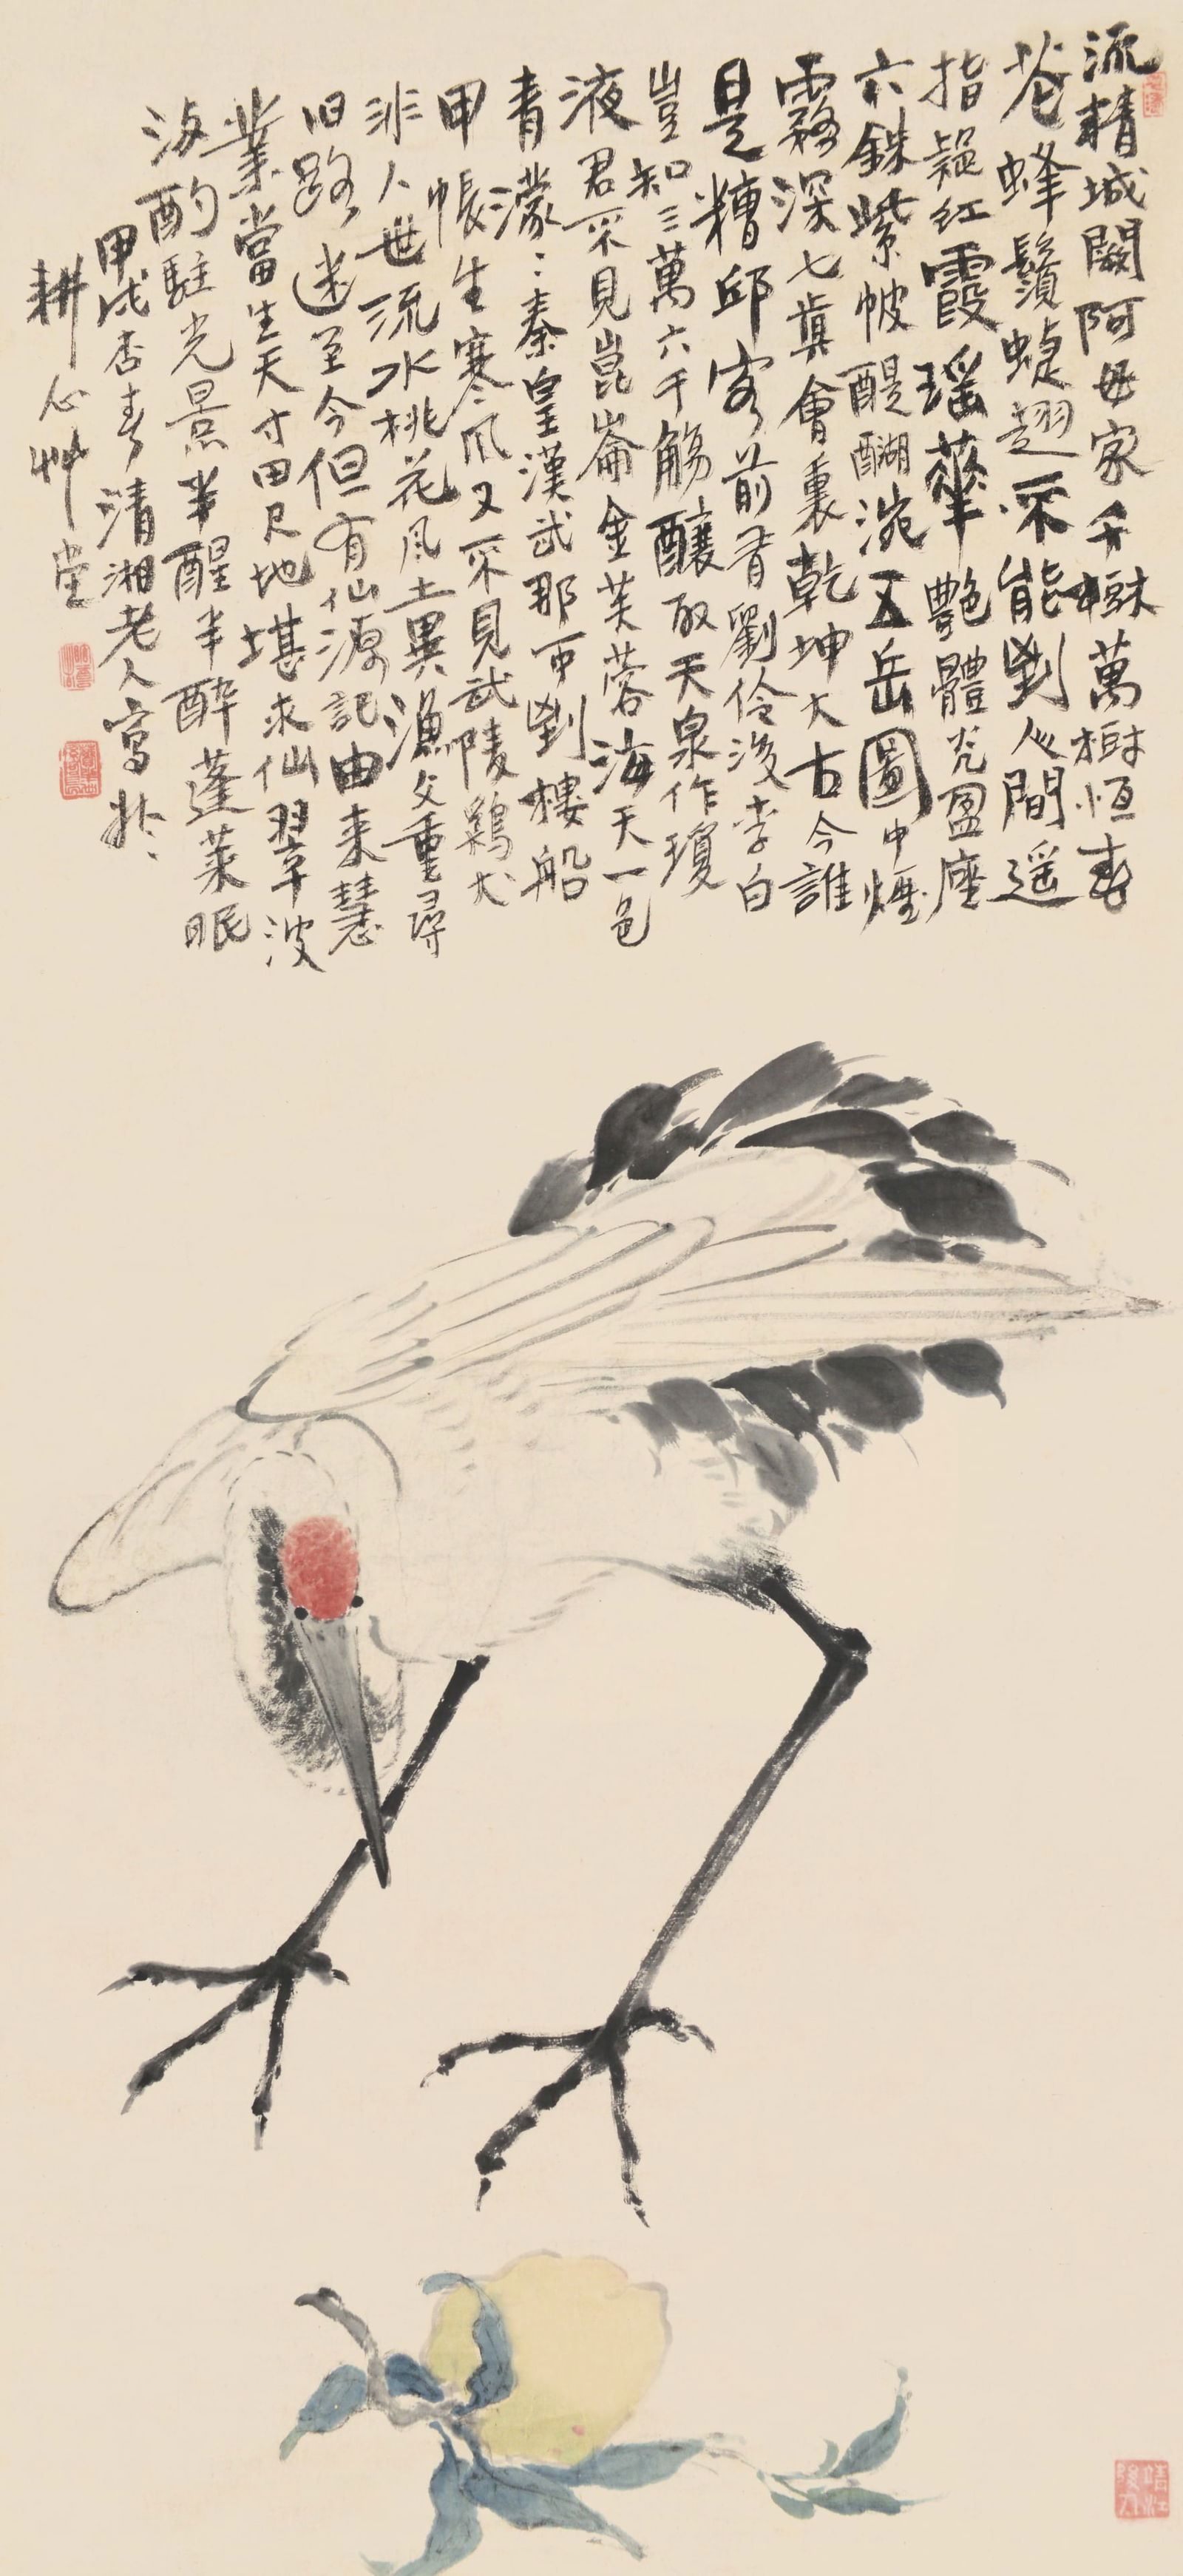 流精城闕阿母家千樹萬樹恒春
花蜂鬚蜨翅不能到人間遥
指疑紅霞瑶華艷體光盈座
六銖紫帔醍醐涴五岳圖中煙
霧深七真會裏乾坤大古今誰
是糟邱客前有劉伶後李白
豈知三萬六千觴釀取天泉作瓊
液君不見崑崙金芙蓉海天一色
青濛〻秦皇漢武那可到樓船
甲帳生寒風又不見武陵鷄犬
非人世流水桃花風土異漁父重尋
旧路迷至今但有仙源記由来慧
業當生天寸田尺地堪求仙翠波
海酌駐光景半醒半醉蓬莱眠
甲戌杏春清湘老人寫於
耕心艸堂